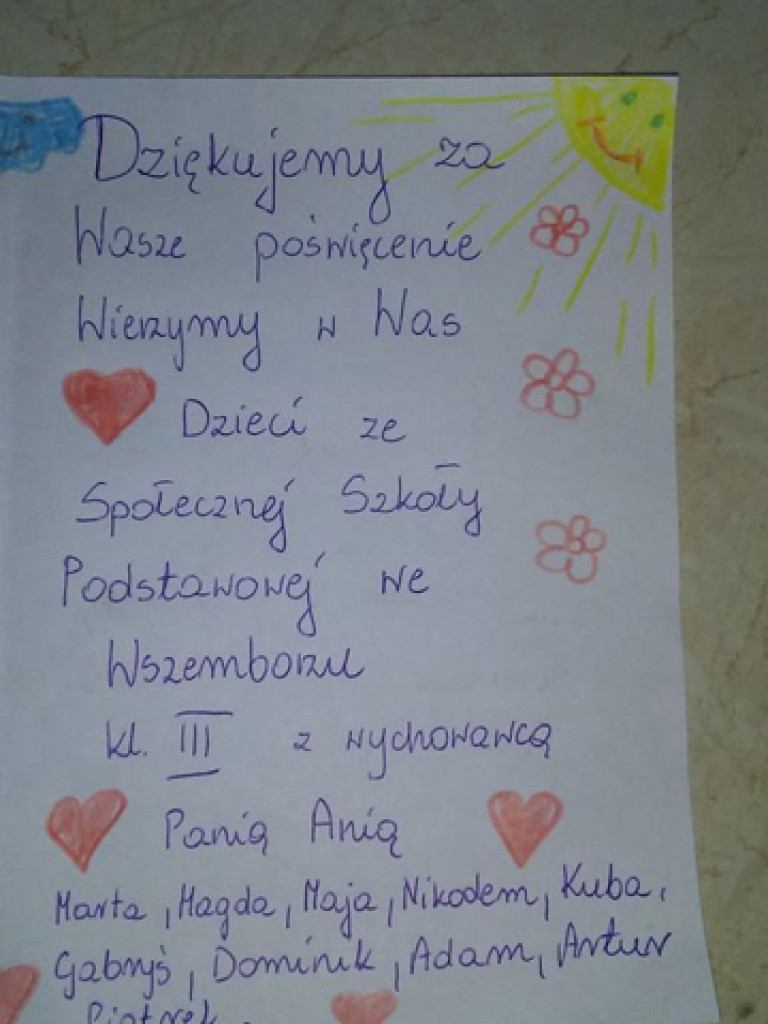 Dziękujemy za
Wasze poświęcenie
Wierzymy w Was
Dzieci ze
Społecznej Szkoły
Podstawowej we
Wszemborzu
kl. III z wychowawcą
Panią Anią
Marta, Magda, Maja, Nikodem, Kuba,
Gabryś, Dominik, Adam, Artur
Piotrek.